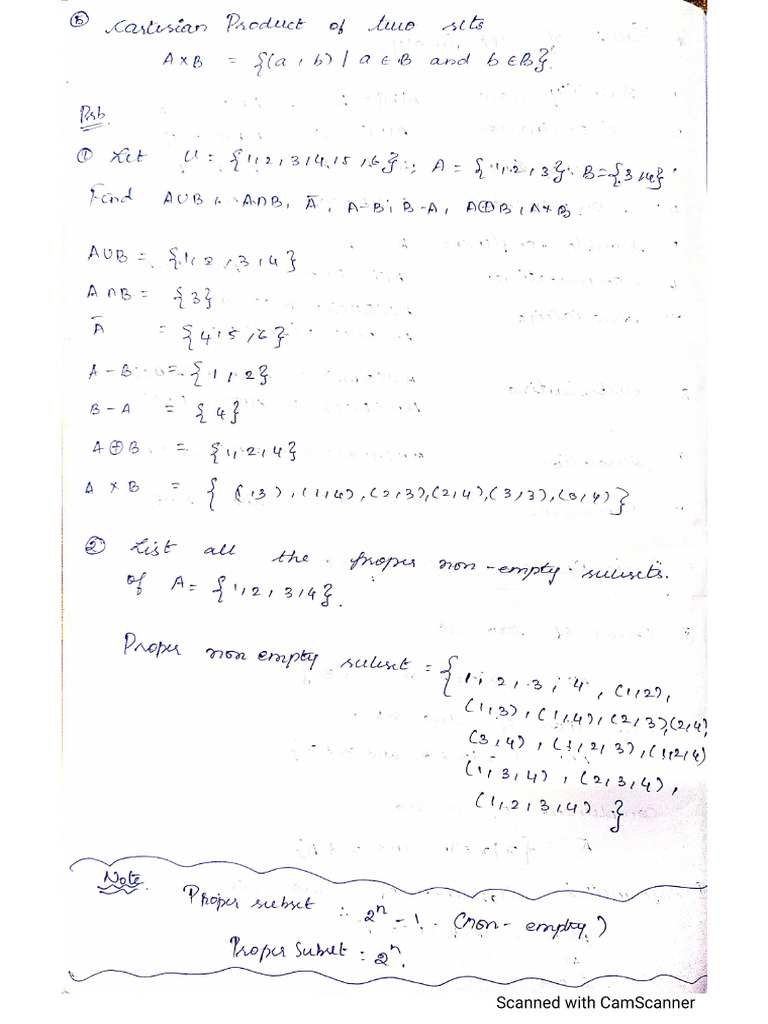 ⑤ Cartesian Product of two sets
A×B = {(a, b) | a ∈ B and b ∈ B}.
Prb
① Let U = {1, 2, 3, 4, 5, 6}; A = {1, 2, 3} B = {3, 4}
Find A∪B, A∩B, Ā, A-B, B-A, A⊕B, A×B.
A∪B = {1, 2, 3, 4}
A∩B = {3}
Ā = {4, 5, 6}
A-B = {1, 2}
B-A = {4}
A⊕B = {1, 2, 4}
A × B = {(1,3), (1,4), (2,3), (2,4), (3,3), (3,4)}
② List all the proper non-empty subsets.
of A = {1, 2, 3, 4}.
Proper non empty subset = {1, 2, 3, 4, (1,2),
(1,3), (1,4), (2,3), (2,4)
(3,4), (1,2,3), (1,2,4)
(1,3,4), (2,3,4),
(1,2,3,4) }
Note.
Proper subset : 2ⁿ-1. (non-empty)
Proper Subset : 2ⁿ.
Scanned with CamScanner